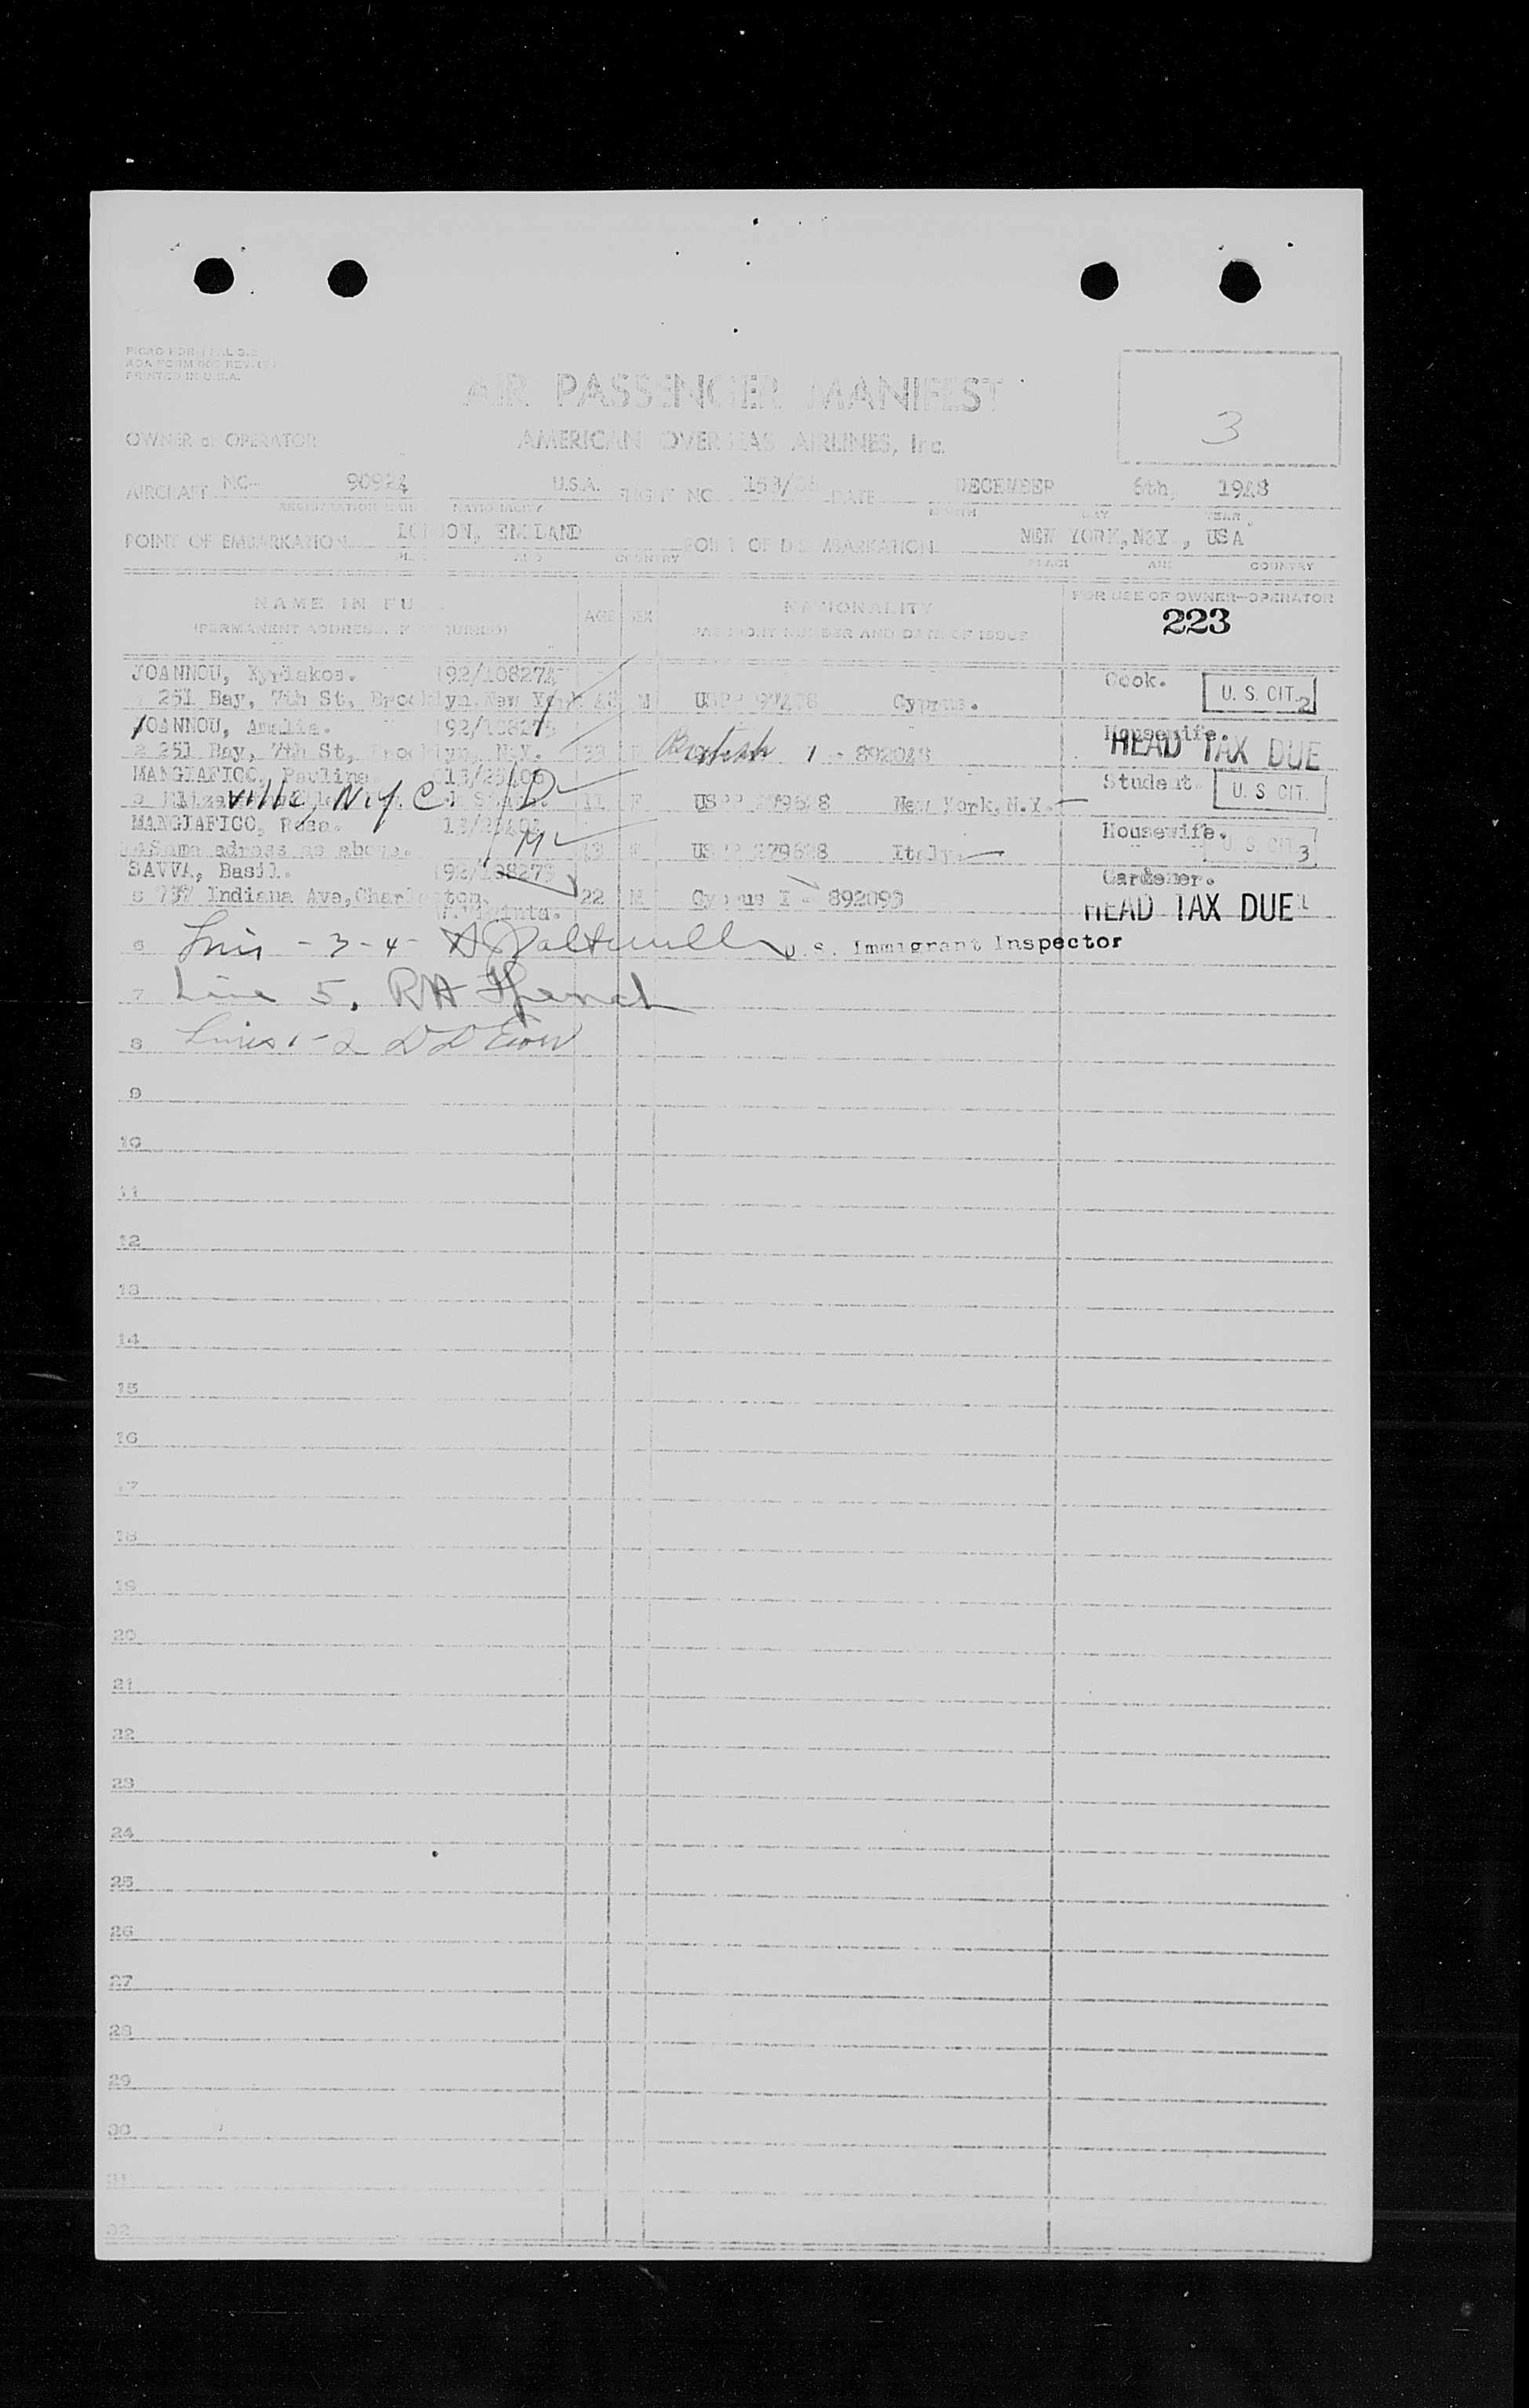 PRINTED IN U.S.A.
AIR PASSENGER MANIFEST
3
OWNER or OPERATOR AMERICAN OVERSEAS AIRLINES, Inc.
AIRCRAFT NC- 90924 U.S.A. FLIGHT NO. DATE DECEMBER 6th, 1948
REGISTRATION MARK NATIONALITY MONTH DAY YEAR
POINT OF EMBARKATION LONDON, ENGLAND POINT OF DISEMBARKATION NEW YORK, N.Y., USA
PLACE AND COUNTRY PLACE AND COUNTRY
NAME IN FULL AGE SEX NATIONALITY FOR USE OF OWNER-OPERATOR
(PERMANENT ADDRESS, IF REQUIRED) PASSPORT NUMBER AND DATE OF ISSUE 223
JOANNOU, Kyriakos. 92/108274 Cook.
251 Bay, 7th St, Brooklyn, New York M USPP Cyprus. U. S. CIT. 2
JOANNOU, Amalia. 92/108275 Housewife.
2 251 Bay, 7th St, Brooklyn, N.Y. 33 F British I - 892048 HEAD TAX DUE
MANGIAFICO, Pauline. Student.
3 ville, N.Y.C. 11 F USPP New York, N.Y. U. S. CIT.
MANGIAFICO, Rosa. Housewife.
4 Same adress as above. USPP Italy. U. S. CIT. 3
SAVVA, Basil. 92/108273 Gardener.
5 737 Indiana Ave, Charleston, 22 M Cyprus I - 892093 HEAD TAX DUE 1
W. Virginta.
6 Lines - 3 - 4 - U. S. Immigrant Inspector
7 Line 5. R H French
8 Lines 1 - 2 D D
9
10
11
12
13
14
15
16
17
18
19
20
21
22
23
24
25
26
27
28
29
30
31
32